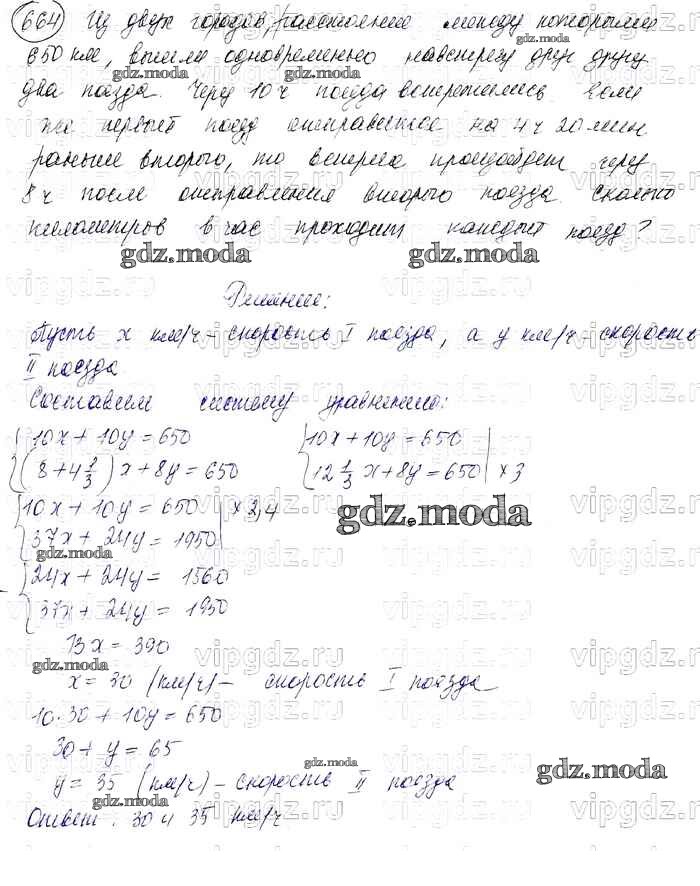 664 Из двух городов, расстояние между которыми
650 км, вышли одновременно навстречу друг другу
два поезда. Через 10 ч поезда встретились. Если
же первый поезд отправится на 4 ч 20 мин
раньше второго, то встреча произойдет через
8 ч после отправления второго поезда. Сколько
километров в час проходит каждый поезд?
Решение:
Пусть x км/ч – скорость I поезда, а y км/ч – скорость
II поезда
Составим систему уравнений:
10x + 10y = 650 10x + 10y = 650
(8 + 4 1/3) x + 8y = 650 12 1/3 x + 8y = 650 | × 3
10x + 10y = 650 | × 2,4
37x + 24y = 1950
24x + 24y = 1560
37x + 24y = 1950
13x = 390
x = 30 (км/ч) – скорость I поезда
10·30 + 10y = 650
30 + y = 65
y = 35 (км/ч) – скорость II поезда
Ответ: 30 и 35 км/ч
gdz.moda
vipgdz.ru